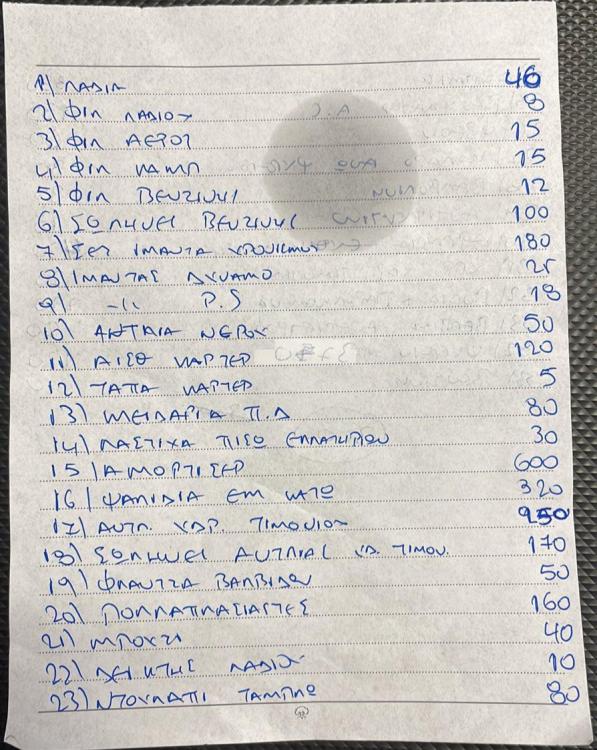 1) ΛΑΔΙΑ 46
2) ΦΙΛ ΛΑΔΙΟΥ 8
3) ΦΙΛ ΑΕΡΟΣ 15
4) ΦΙΛ ΚΑΜΠ 15
5) ΦΙΛ ΒΕΝΖΙΝΗΣ 12
6) ΣΩΛΗΝΕΣ ΒΕΝΖΙΝΗΣ 100
7) ΣΕΤ ΙΜΑΝΤΑ ΧΡΟΝΙΣΜΟΥ 180
8) ΙΜΑΝΤΑΣ ΔΥΝΑΜΟ 25
9) -\\- P.S 18
10) ΑΝΤΛΙΑ ΝΕΡΟΥ 50
11) ΑΙΣΘ ΚΑΡΤΕΡ 120
12) ΤΑΠΑ ΚΑΡΤΕΡ 5
13) Π.Δ 80
14) ΛΑΣΤΙΧΑ ΠΙΣΩ ΕΛΛΑΤΗΡΙΩΝ 30
15) ΑΜΟΡΤΙΣΕΡ 600
16) ΨΑΛΙΔΙΑ ΕΜ ΚΑΤΩ 320
17) ΑΝΤΛ. ΥΔΡ. ΤΙΜΟΝΙΟΥ 950
18) ΣΩΛΗΝΕΣ ΑΝΤΛΙΑΣ ΥΔ. ΤΙΜΟΝ. 170
19) ΦΛΑΝΤΖΑ ΒΑΛΒΙΔΩΝ 50
20) ΠΟΛΛΑΠΛΑΣΙΑΣΤΕΣ 160
21) ΜΠΟΥΖΙ 40
22) ΔΕΙΚΤΗΣ ΛΑΔΙΟΥ 10
23) ΝΤΟΥΛΑΠΙ ΤΑΜΠΛΩ 80